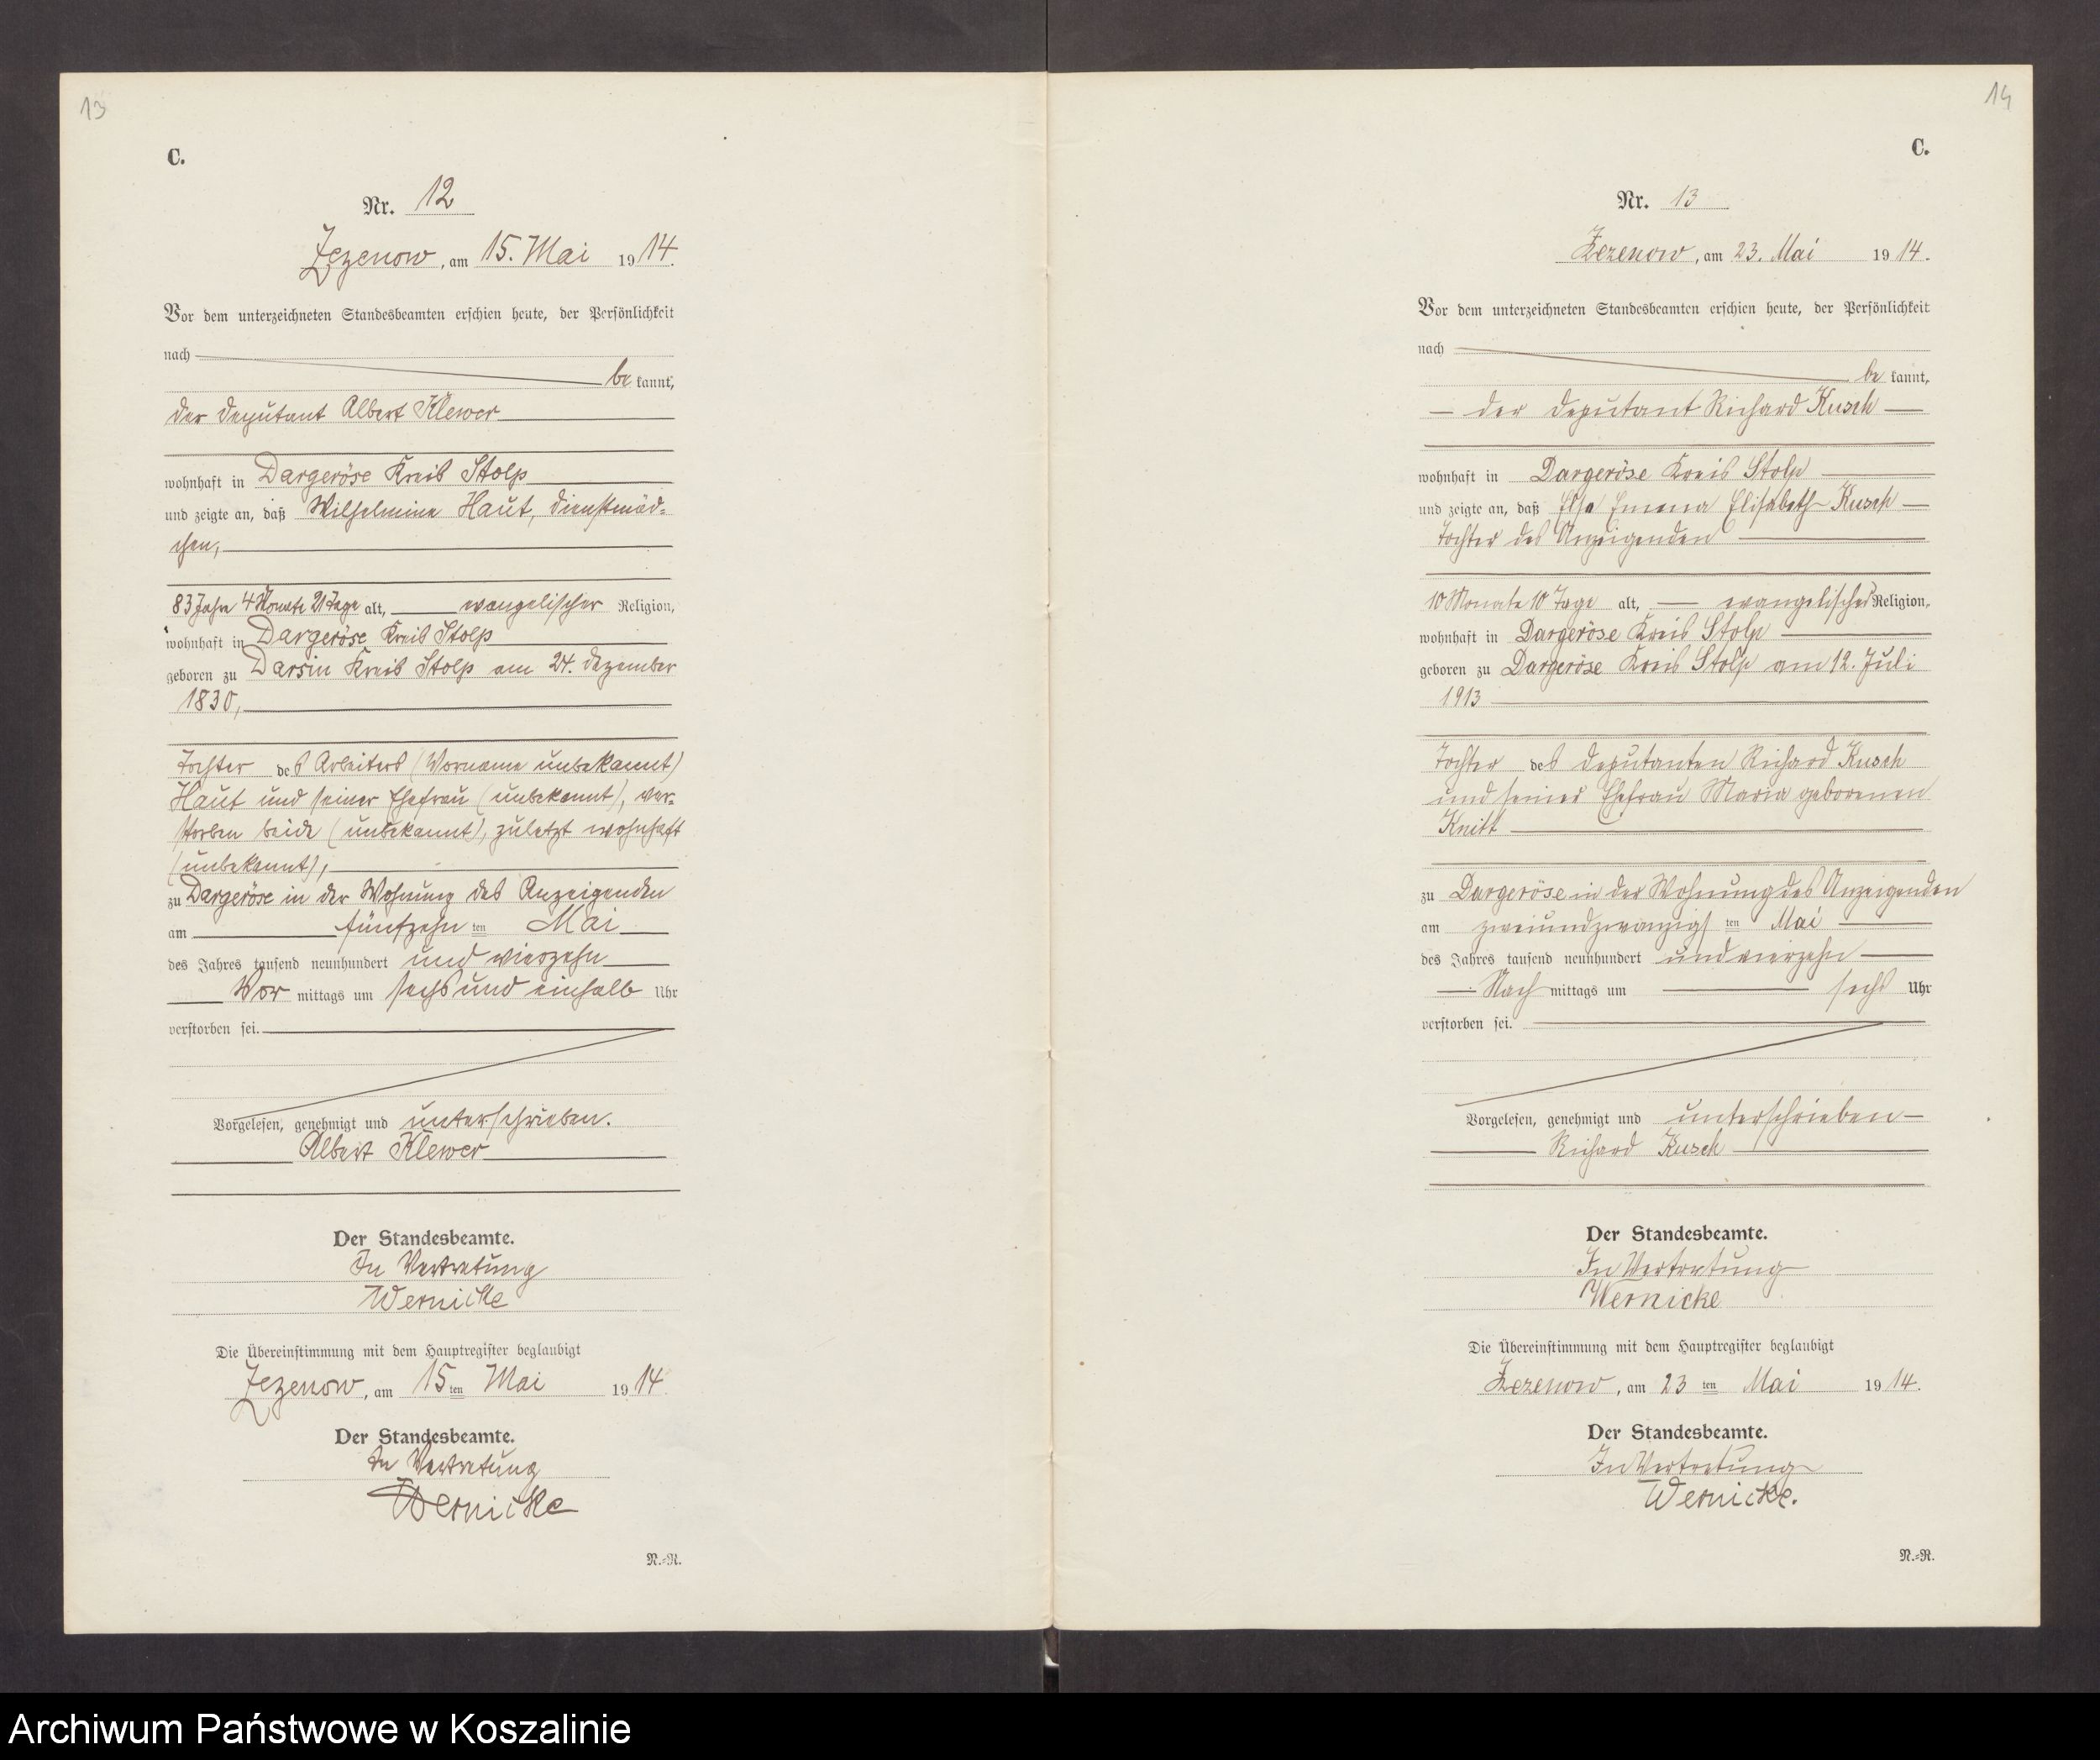 13
C.
Nr. 12
Zezenow, am 15. Mai 1914.
Vor dem unterzeichneten Standesbeamten erschien heute, der Persönlichkeit
nach
be kannt,
der Deputant Albert Klewer
wohnhaft in Dargeröse Kreis Stolp
und zeigte an, daß Wilhelmine Haut, Dienstmäd-
chen,
83 Jahre 4 Monate 21 Tage alt, evangelischer Religion,
wohnhaft in Dargeröse Kreis Stolp
geboren zu Darsin Kreis Stolp am 24. Dezember
1830,
Tochter des Arbeiters (Vorname unbekannt)
Haut und seiner Ehefrau (unbekannt), ver-
storben beide (unbekannt), zuletzt wohnhaft
(unbekannt),
zu Dargeröse in der Wohnung des Anzeigenden
am fünfzehn ten Mai
des Jahres tausend neunhundert und vierzehn
Vor mittags um sechs und einhalb Uhr
verstorben sei.
Vorgelesen, genehmigt und unterschrieben.
Albert Klewer
Der Standesbeamte.
In Vertretung
Wernicke
Die Übereinstimmung mit dem Hauptregister beglaubigt
Zezenow, am 15 ten Mai 1914.
Der Standesbeamte.
In Vertretung
Wernicke
N.-R.
14
C.
Nr. 13
Zezenow, am 23. Mai 1914.
Vor dem unterzeichneten Standesbeamten erschien heute, der Persönlichkeit
nach
be kannt,
der Deputant Richard Kusch
wohnhaft in Dargeröse Kreis Stolp
und zeigte an, daß Elsa Emma Elisabeth Kusch
Tochter des Anzeigenden
10 Monate 10 Tage alt, evangelischer Religion,
wohnhaft in Dargeröse Kreis Stolp
geboren zu Dargeröse Kreis Stolp am 12. Juli
1913
Tochter des Deputanten Richard Kusch
und seiner Ehefrau Maria geborenen
Knitt
zu Dargeröse in der Wohnung des Anzeigenden
am zweiundzwanzigs ten Mai
des Jahres tausend neunhundert und vierzehn
Nach mittags um sechs Uhr
verstorben sei.
Vorgelesen, genehmigt und unterschrieben
Richard Kusch
Der Standesbeamte.
In Vertretung
Wernicke
Die Übereinstimmung mit dem Hauptregister beglaubigt
Zezenow, am 23 ten Mai 1914.
Der Standesbeamte.
In Vertretung
Wernicke.
N.-R.
Archiwum Państwowe w Koszalinie